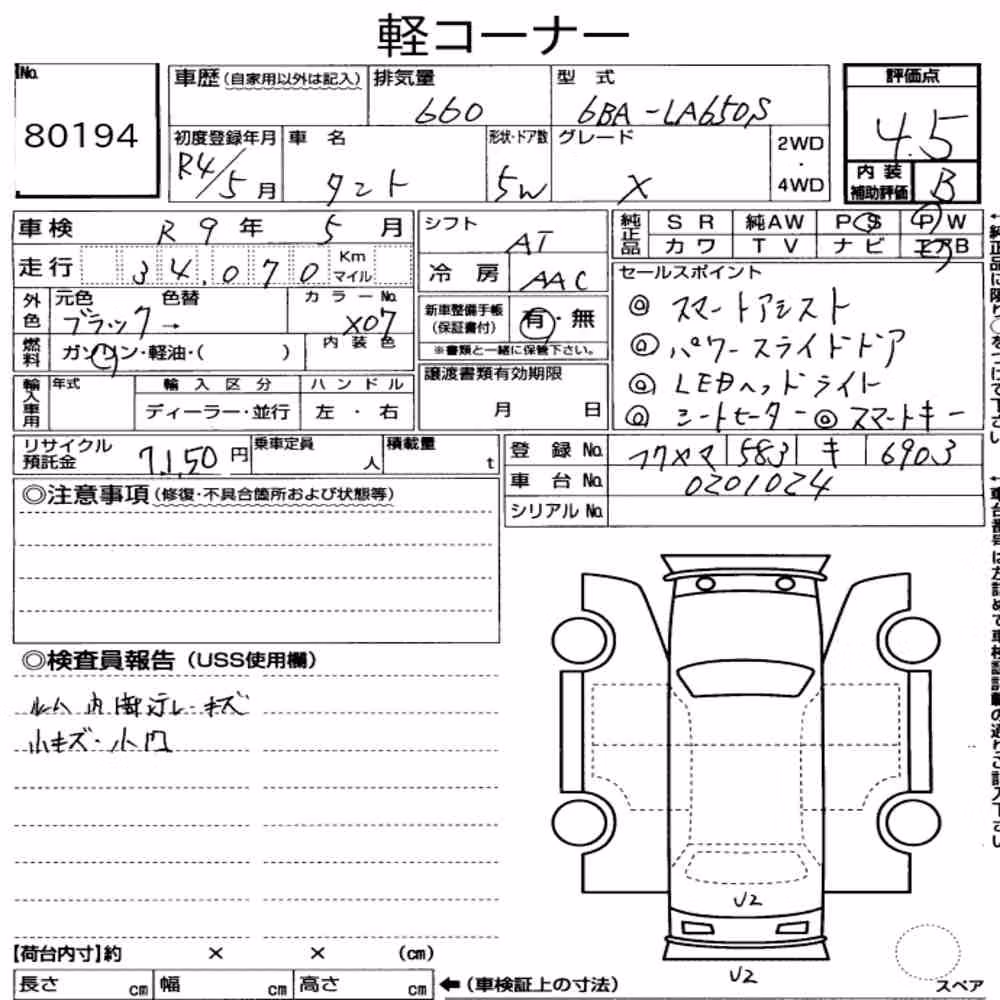 軽コーナー
No. 80194
車歴(自家用以外は記入) 排気量 660 型式 6BA-LA650S
初度登録年月 R4/5月 車名 タント 形状・ドア数 5W グレード X 2WD・4WD
評価点 4.5
内装補助評価 B
車検 R9年 5月
走行 34,070 Km マイル
外色 元色 ブラック → 色替 カラーNo. X07
燃料 ガソリン・軽油・( ) 内装色
輸入車用 年式 輸入区分 ハンドル
ディーラー・並行 左・右
シフト AT
冷房 AAC
新車整備手帳(保証書付) 有・無
※書類と一緒に保管下さい。
譲渡書類有効期限
月 日
純正品 SR 純AW PS PW
カワ TV ナビ エアB
セールスポイント
◎ スマートアシスト
◎ パワースライドドア
◎ LEDヘッドライト
◎ シートヒーター ◎ スマートキー
リサイクル預託金 7,150円 乗車定員 人 積載量 t
登録No. フクヤマ 583 キ 6903
車台No. 0201024
シリアルNo.
◎注意事項(修復・不具合箇所および状態等)
◎検査員報告(USS使用欄)
ルーム内 キズ
小キズ・小凹
U2
U2
【荷台内寸】約 × × (cm)
長さ cm 幅 cm 高さ cm ←(車検証上の寸法)
スペア
↑純正品に限り○をつけて下さい
↑車台番号は左詰めで車検証記載の通りご記入下さい